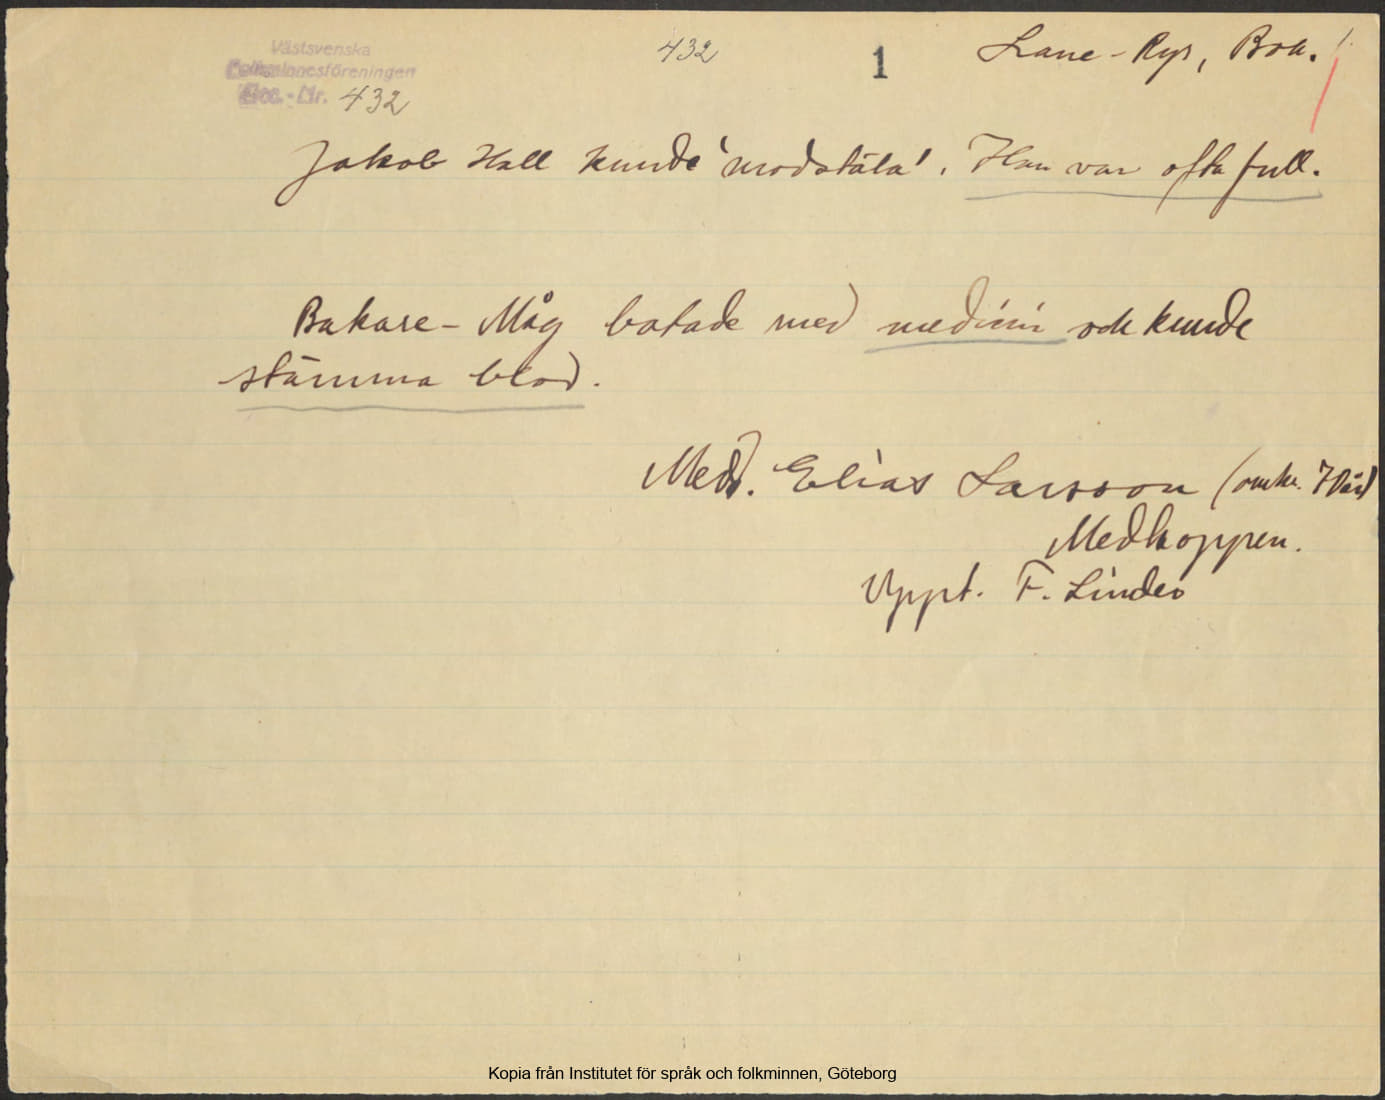 Västsvenska
Folkminnesföreningen
Acc.-Nr. 432
432
1
Lane-Ryr, Boh.
Jakob Hall kunde 'modstäla'. Han var ofta full.
Bakare-Måg botade med medicin och kunde
stämma blod.
Medd. Elias Larsson (omkr. 70 år)
Medhoppen.
Uppt. F. Linder
Kopia från Institutet för språk och folkminnen, Göteborg